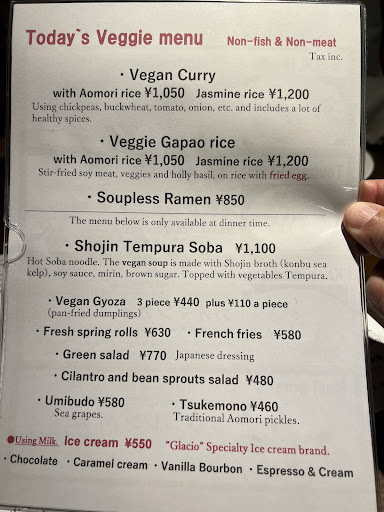 Today`s Veggie menu Non-fish & Non-meat
Tax inc.
・Vegan Curry
with Aomori rice ¥1,050 Jasmine rice ¥1,200
Using chickpeas, buckwheat, tomato, onion, etc. and includes a lot of
healthy spices.
・Veggie Gapao rice
with Aomori rice ¥1,050 Jasmine rice ¥1,200
Stir-fried soy meat, veggies and holly basil. on rice with fried egg.
・Soupless Ramen ¥850
The menu below is only available at dinner time.
・Shojin Tempura Soba ¥1,100
Hot Soba noodle. The vegan soup is made with Shojin broth (konbu sea
kelp), soy sauce, mirin, brown sugar. Topped with vegetables Tempura.
・Vegan Gyoza 3 piece ¥440 plus ¥110 a piece
(pan-fried dumplings)
・Fresh spring rolls ¥630 ・French fries ¥580
・Green salad ¥770 Japanese dressing
・Cilantro and bean sprouts salad ¥480
・Umibudo ¥580 ・Tsukemono ¥460
Sea grapes. Traditional Aomori pickles.
●Using Milk. Ice cream ¥550 "Glacio" Specialty Ice cream brand.
・Chocolate ・Caramel cream ・Vanilla Bourbon ・Espresso & Cream